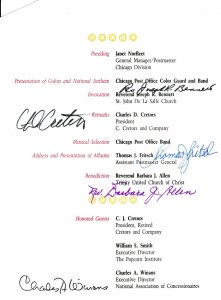 Presiding Janet Norfleet
General Manager/Postmaster
Chicago Division
Presentation of Colors and National Anthem Chicago Post Office Color Guard and Band
Rev Joseph R. Bennett
Invocation Reverend Joseph R. Bennett
St. John De La Salle Church
CD Cretors
Remarks Charles D. Cretors
President
C. Cretors and Company
Musical Selection Chicago Post Office Band
Thomas J. Fritsch
Address and Presentation of Albums Thomas J. Fritsch
Assistant Postmaster General
Benediction Reverend Barbara J. Allen
Trinity United Church of Christ
Rev. Barbara J. Allen
Honored Guests C. J. Cretors
President, Retired
Cretors and Company
William E. Smith
Executive Director
The Popcorn Institute
Charles A. Winans
Executive Director
National Association of Concessionaires
Charles A Winans